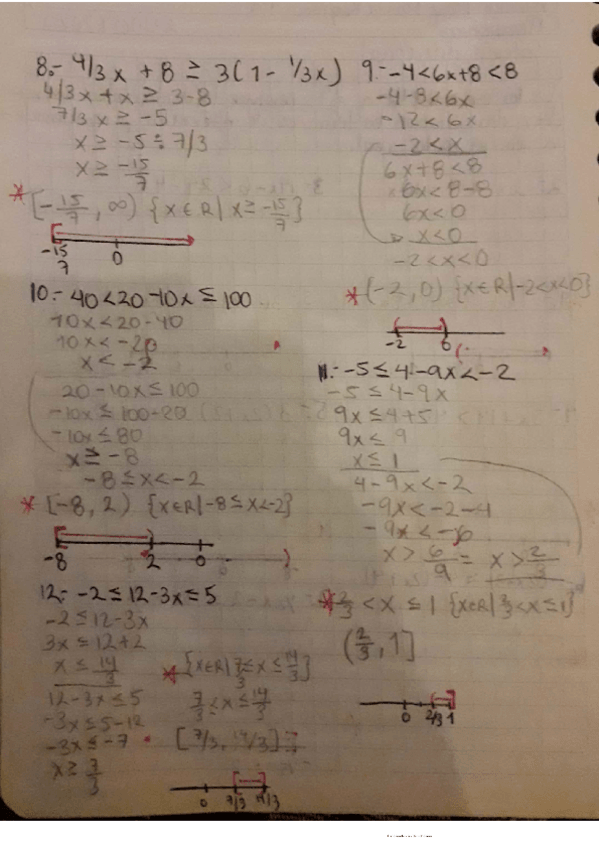 8.- 4/3x + 8 ≥ 3(1 - 1/3x)
4/3x + x ≥ 3-8
7/3x ≥ -5
x ≥ -5 ÷ 7/3
x ≥ -15/7
* [-15/7, ∞) {x∈R | x ≥ -15/7}
-15/7 0
9.- -4<6x+8<8
-4-8<6x
-12<6x
-2<x
6x+8<8
6x<8-8
6x<0
x<0
-2<x<0
* (-2,0) {x∈R|-2<x<0}
-2 0
10.- -40<20-10x≤100
10x<20-40
10x<-20
x<-2
20-10x≤100
-10x≤100-20
-10x≤80
x≥-8
-8≤x<-2
* [-8, 2) {x∈R|-8≤x<-2}
-8 2 0
11.- -5≤4-9x<-2
-5≤4-9x
9x≤4+5
9x≤9
x≤1
4-9x<-2
-9x<-2-4
-9x<-6
x>6/9 = x>2/3
* 2/3<x≤1 {x∈R|2/3<x≤1}
(2/3, 1]
0 2/3 1
12.- -2≤12-3x≤5
-2≤12-3x
3x≤12+2
x≤14/3
12-3x≤5
-3x≤5-12
-3x≤-7
x≥7/3
* {x∈R|7/3≤x≤14/3}
7/3≤x≤14/3
[7/3, 14/3]
0 7/3 14/3